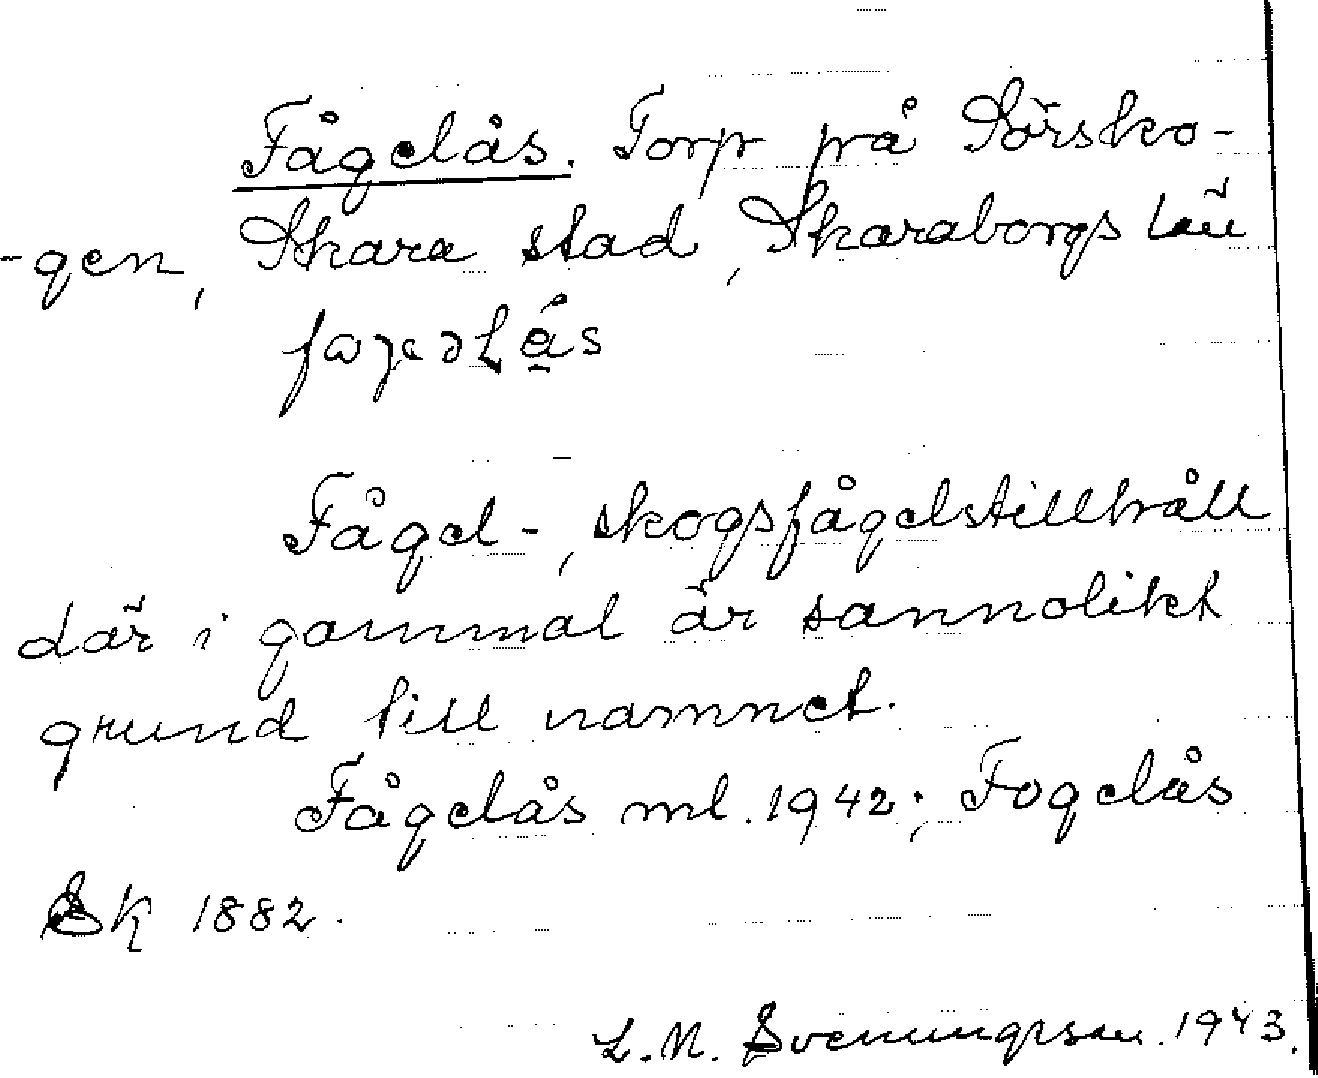 Fågelås. Torp på Sörsko-
-gen, Skara stad, Skaraborgs län
Fågel-, skogsfågelstillhåll
där i gammal är sannolikt
grund till namnet.
Fågelås ml. 1942; Fogelås
SK 1882.
L. N. Svenungsson. 1943.